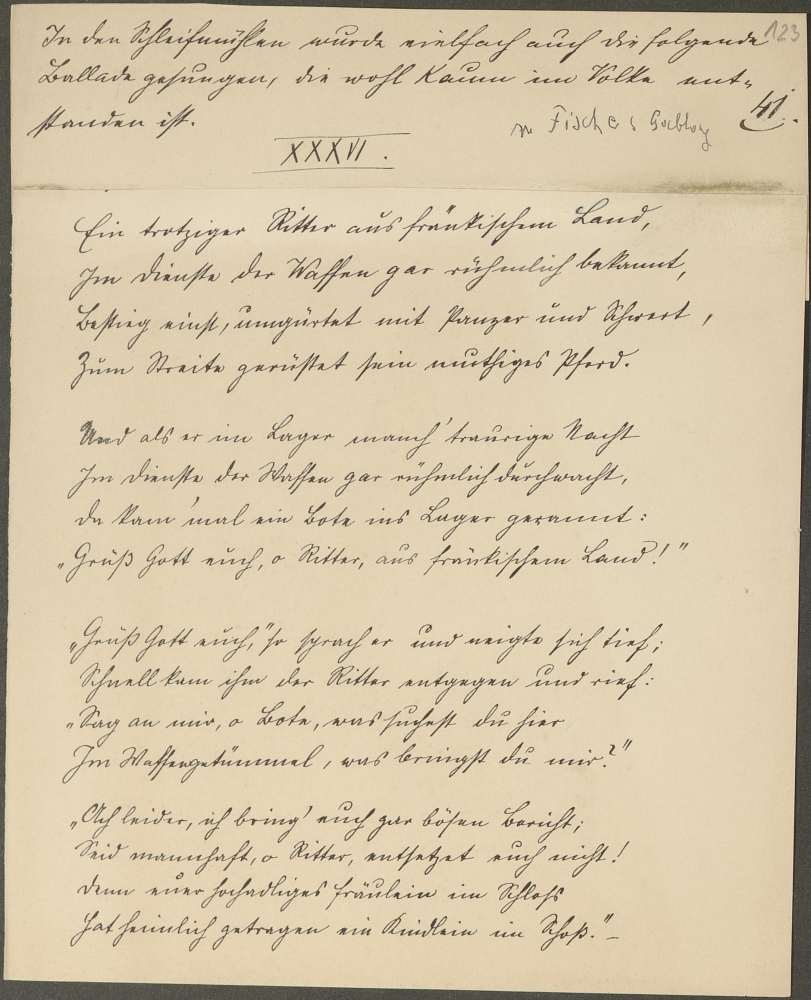 123
In den Schleifmühlen wurde vielfach auch die folgende
Ballade gesungen, die wohl kaum im Volke ent-
standen ist.
41.
Fischer
XXXVI.
Ein trotziger Ritter aus fränkischem Land,
Im Dienste der Waffen gar rühmlich bekannt,
Bestieg einst, umgürtet mit Panzer und Schwert,
Zum Streite gerüstet sein muthiges Pferd.
Und als er im Lager manch' traurige Nacht
Im Dienste der Waffen gar rühmlich durchwacht,
Da kam 'mal ein Bote ins Lager gerannt:
„Grüß Gott euch, o Ritter, aus fränkischem Land!"
„Grüß Gott euch," so sprach er und neigte sich tief;
Schnell kam ihm der Ritter entgegen und rief:
„Sag an mir, o Bote, was suchest du hier
Im Waffengetümmel, was bringst du mir?"
„Ach leider, ich bring' euch gar bösen Bericht;
Seid mannhaft, o Ritter, entsetzet euch nicht!
Denn euer hochadliges Fräulein im Schloß
Hat heimlich getragen ein Kindlein im Schoß."–